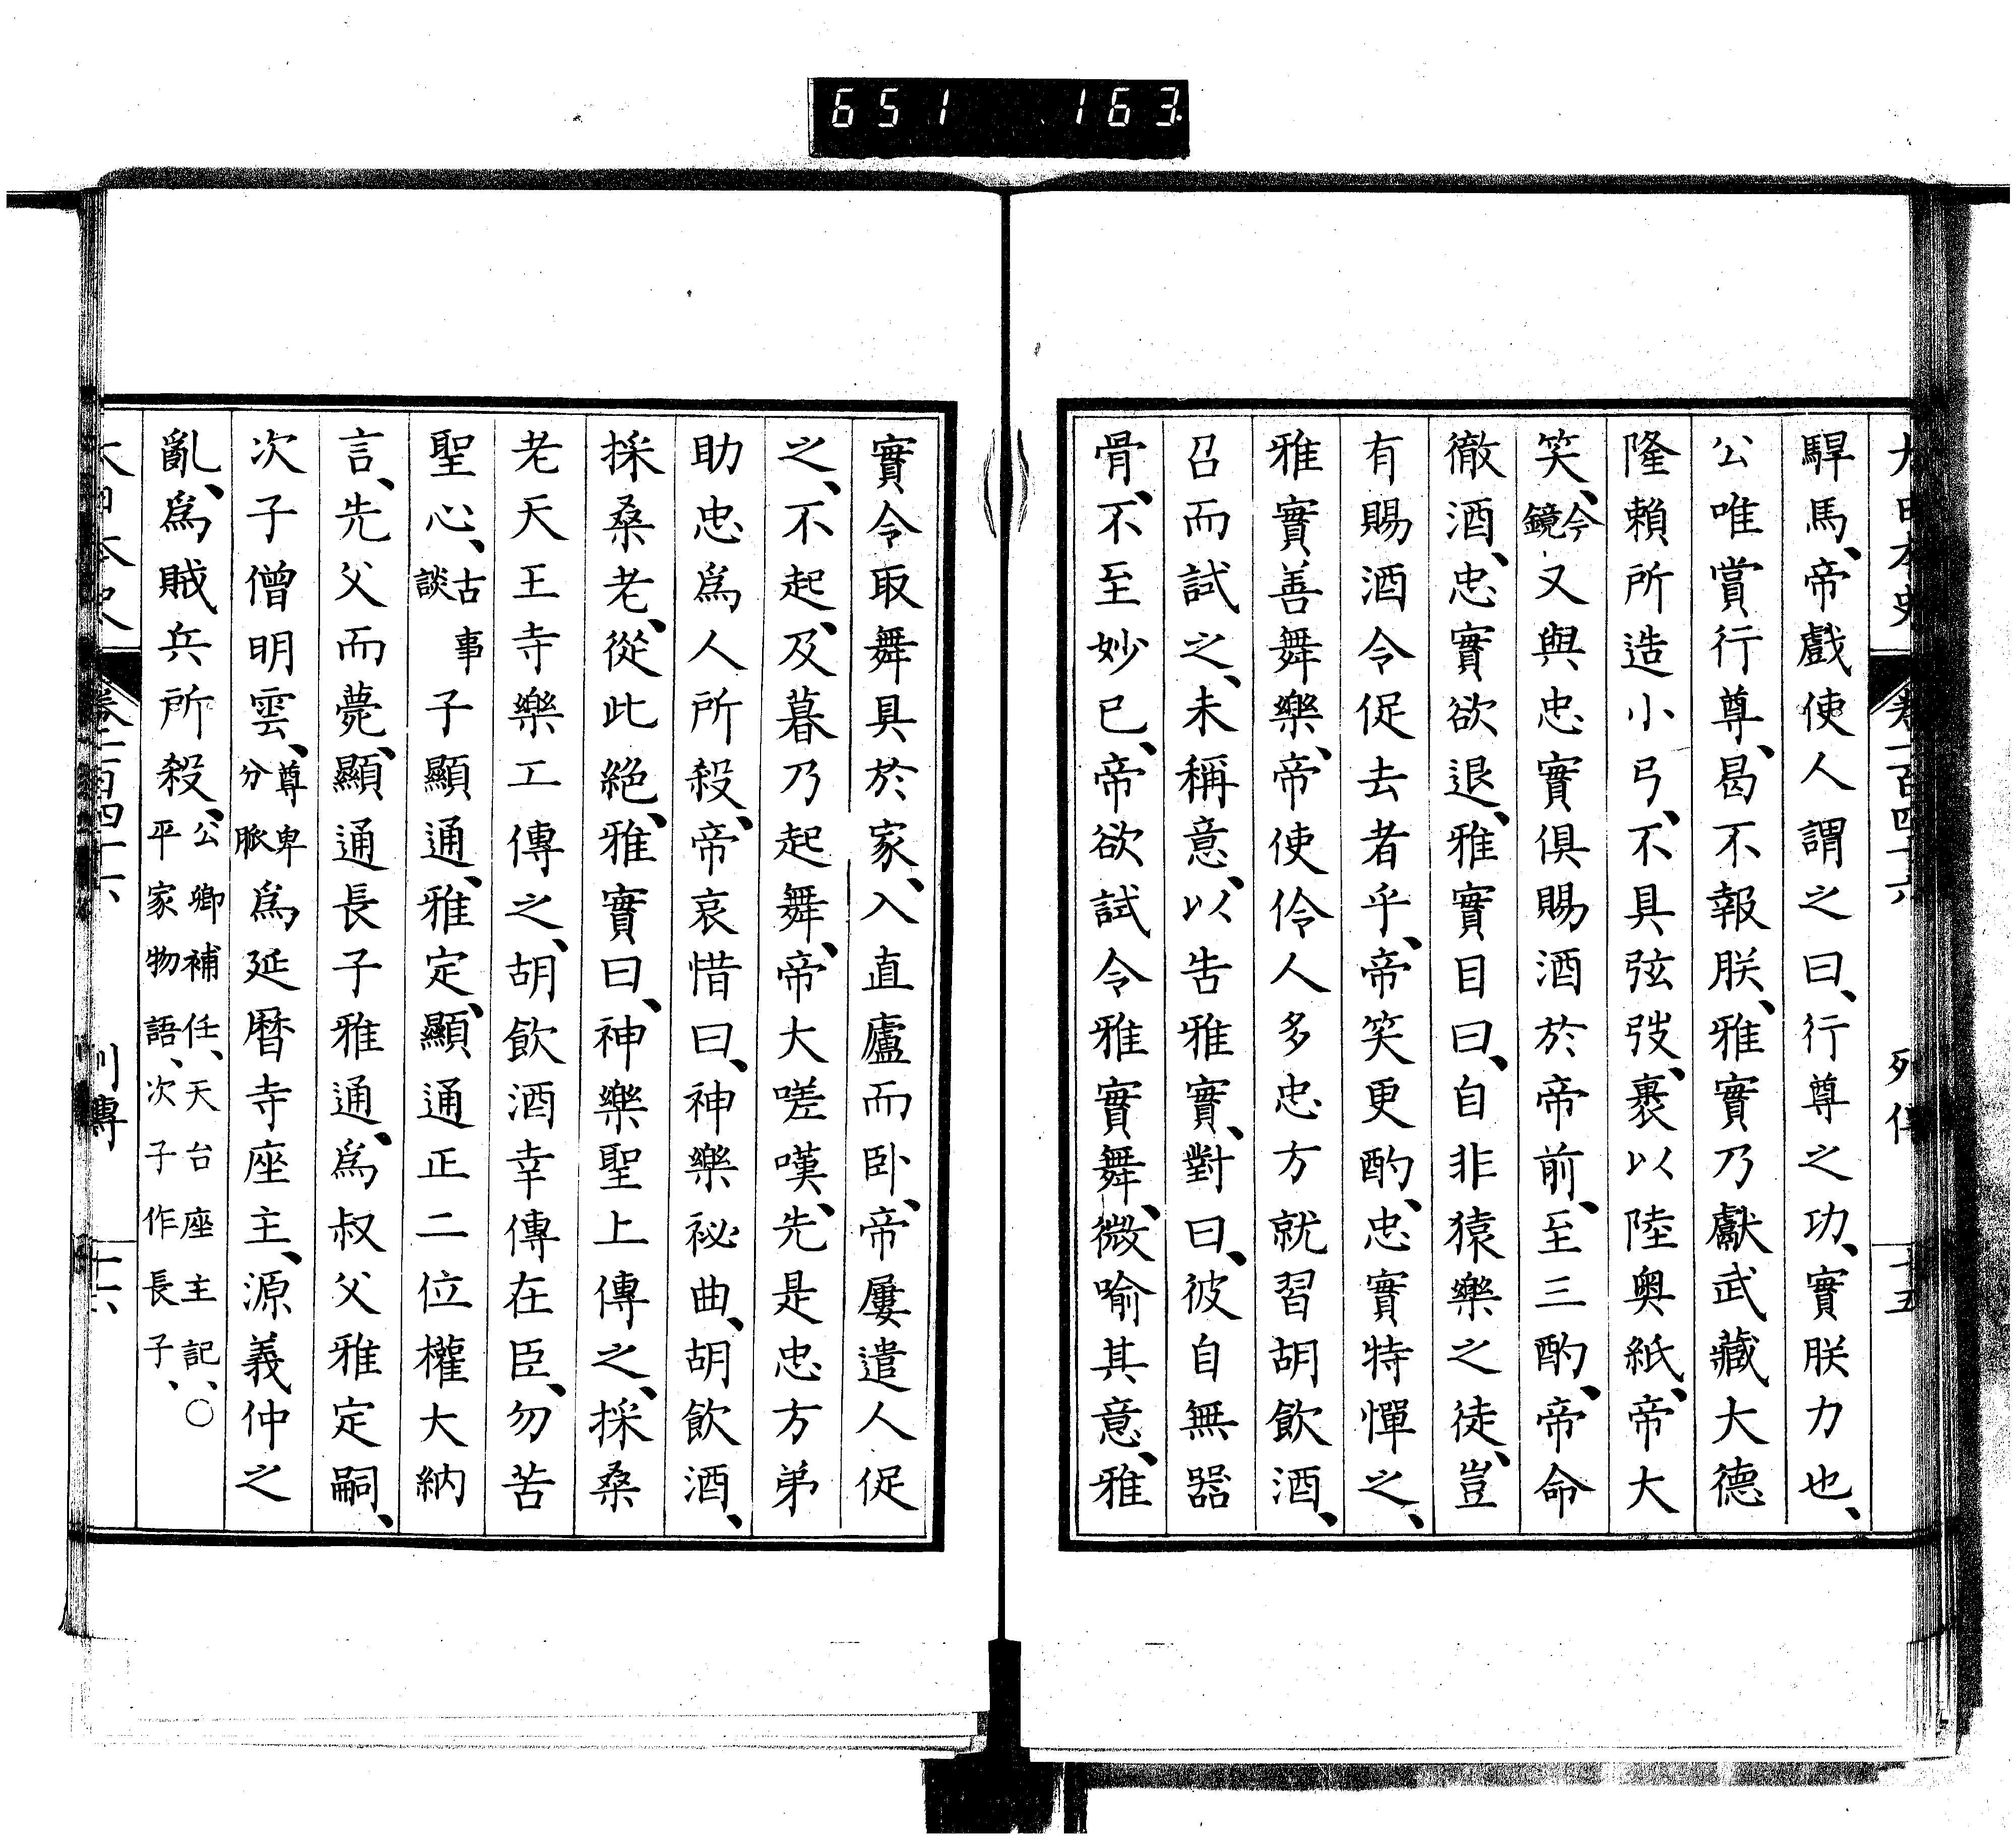 651 163
大日本史 卷一百四十六 列傳 十五
騂馬、帝戲使人謂之曰、行尊之功、實朕力也、
公唯賞行尊、曷不報朕、雅實乃獻武藏大德
隆賴所造小弓、不具弦弢、裹以陸奧紙、帝大
笑、今鏡又與忠實俱賜酒於帝前、至三酌、帝命
徹酒、忠實欲退、雅實目曰、自非猿樂之徒、豈
有賜酒令促去者乎、帝笑更酌、忠實特憚之、
雅實善舞樂、帝使伶人多忠方就習胡飮酒、
召而試之、未稱意、以告雅實、對曰、彼自無器
骨、不至妙已、帝欲試令雅實舞、微喻其意、雅
實令取舞具於家、入直廬而卧、帝屢遣人促
之、不起、及暮乃起舞、帝大嗟嘆、先是忠方弟
助忠爲人所殺、帝哀惜曰、神樂祕曲、胡飮酒、
採桑老、從此絕、雅實曰、神樂聖上傳之、採桑
老天王寺樂工傳之、胡飮酒幸傳在臣、勿苦
聖心、古事談子顯通、雅定、顯通正二位權大納
言、先父而薨、顯通長子雅通、爲叔父雅定嗣、
次子僧明雲、尊卑分脈爲延曆寺座主、源義仲之
亂、爲賊兵所殺、公卿補任、天台座主記、〇平家物語、次子作長子、
大日本史 卷一百四十六 列傳 十六